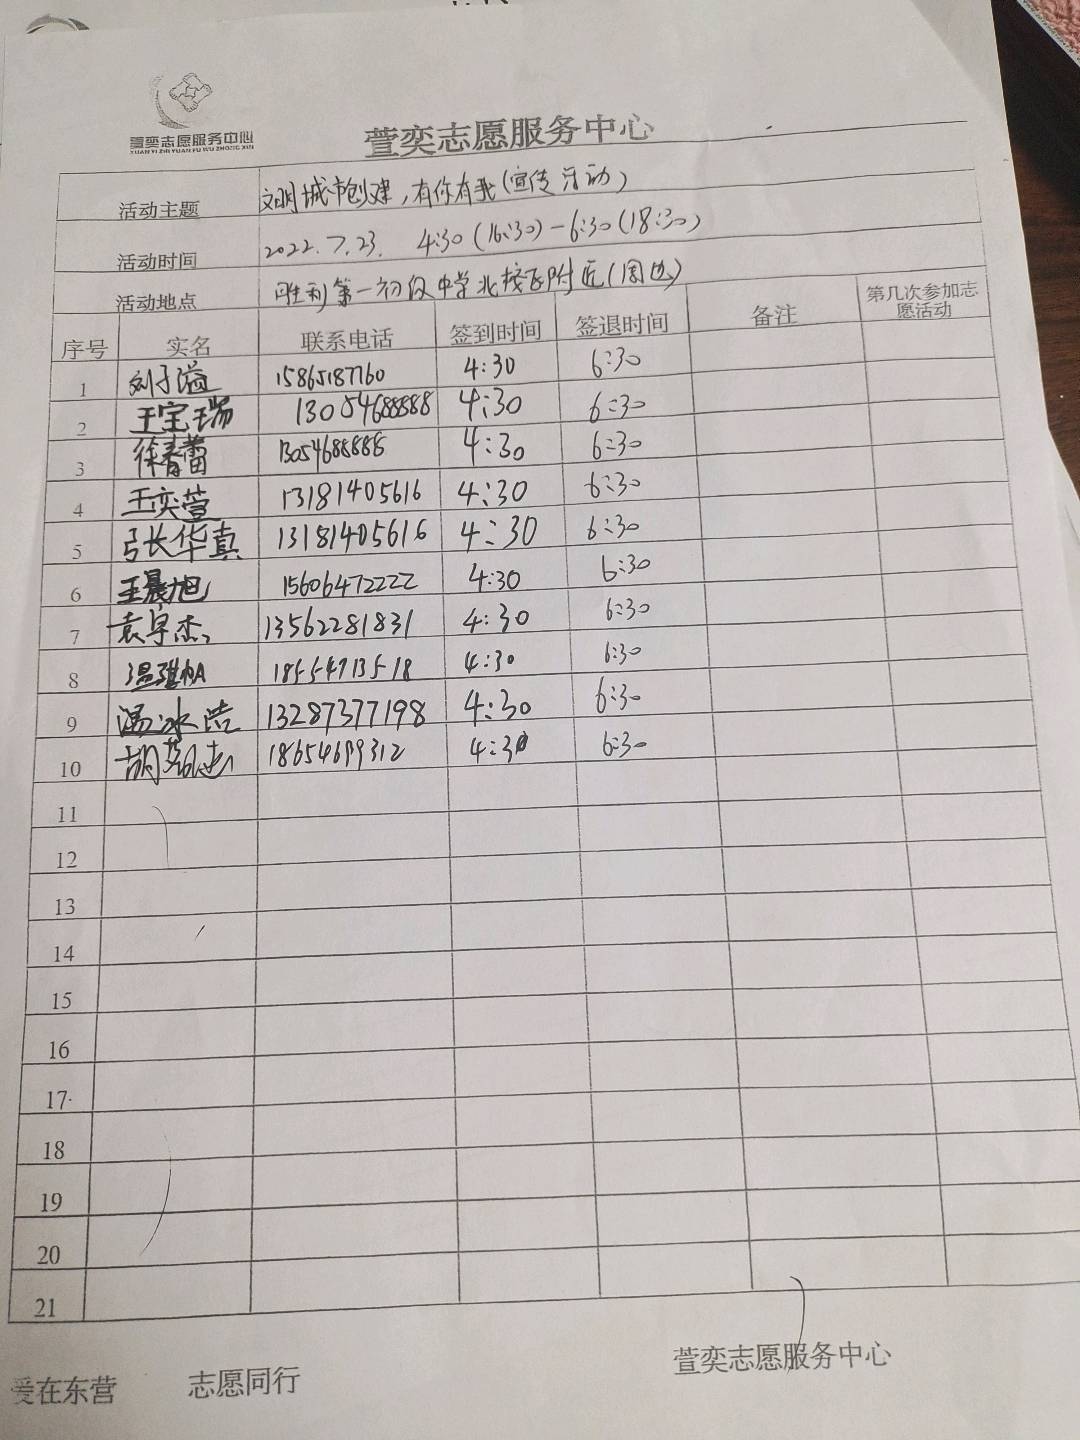 萱奕志愿服务中心
XUAN YI ZHI YUAN FU WU ZHONG XIN
萱奕志愿服务中心
活动主题 文明城市创建，有你有我（宣传活动）
活动时间 2022.7.23. 4:30（16:30）-6:30（18:30）
活动地点 胜利第一初级中学北校区附近（周边）
序号 实名 联系电话 签到时间 签退时间 备注 第几次参加志愿活动
1 刘子溢 15865187760 4:30 6:30
2 王宝瑞 13054688888 4:30 6:30
3 徐春蕾 13054688888 4:30 6:30
4 王奕萱 13181405616 4:30 6:30
5 张华真 13181405616 4:30 6:30
6 王晨旭 15606472222 4:30 6:30
7 袁宇杰 13562281831 4:30 6:30
8 18554713518 4:30 6:30
9 温冰浩 13287377198 4:30 6:30
10 18654699312 4:30 6:30
11
12
13
14
15
16
17
18
19
20
21
爱在东营 志愿同行 萱奕志愿服务中心